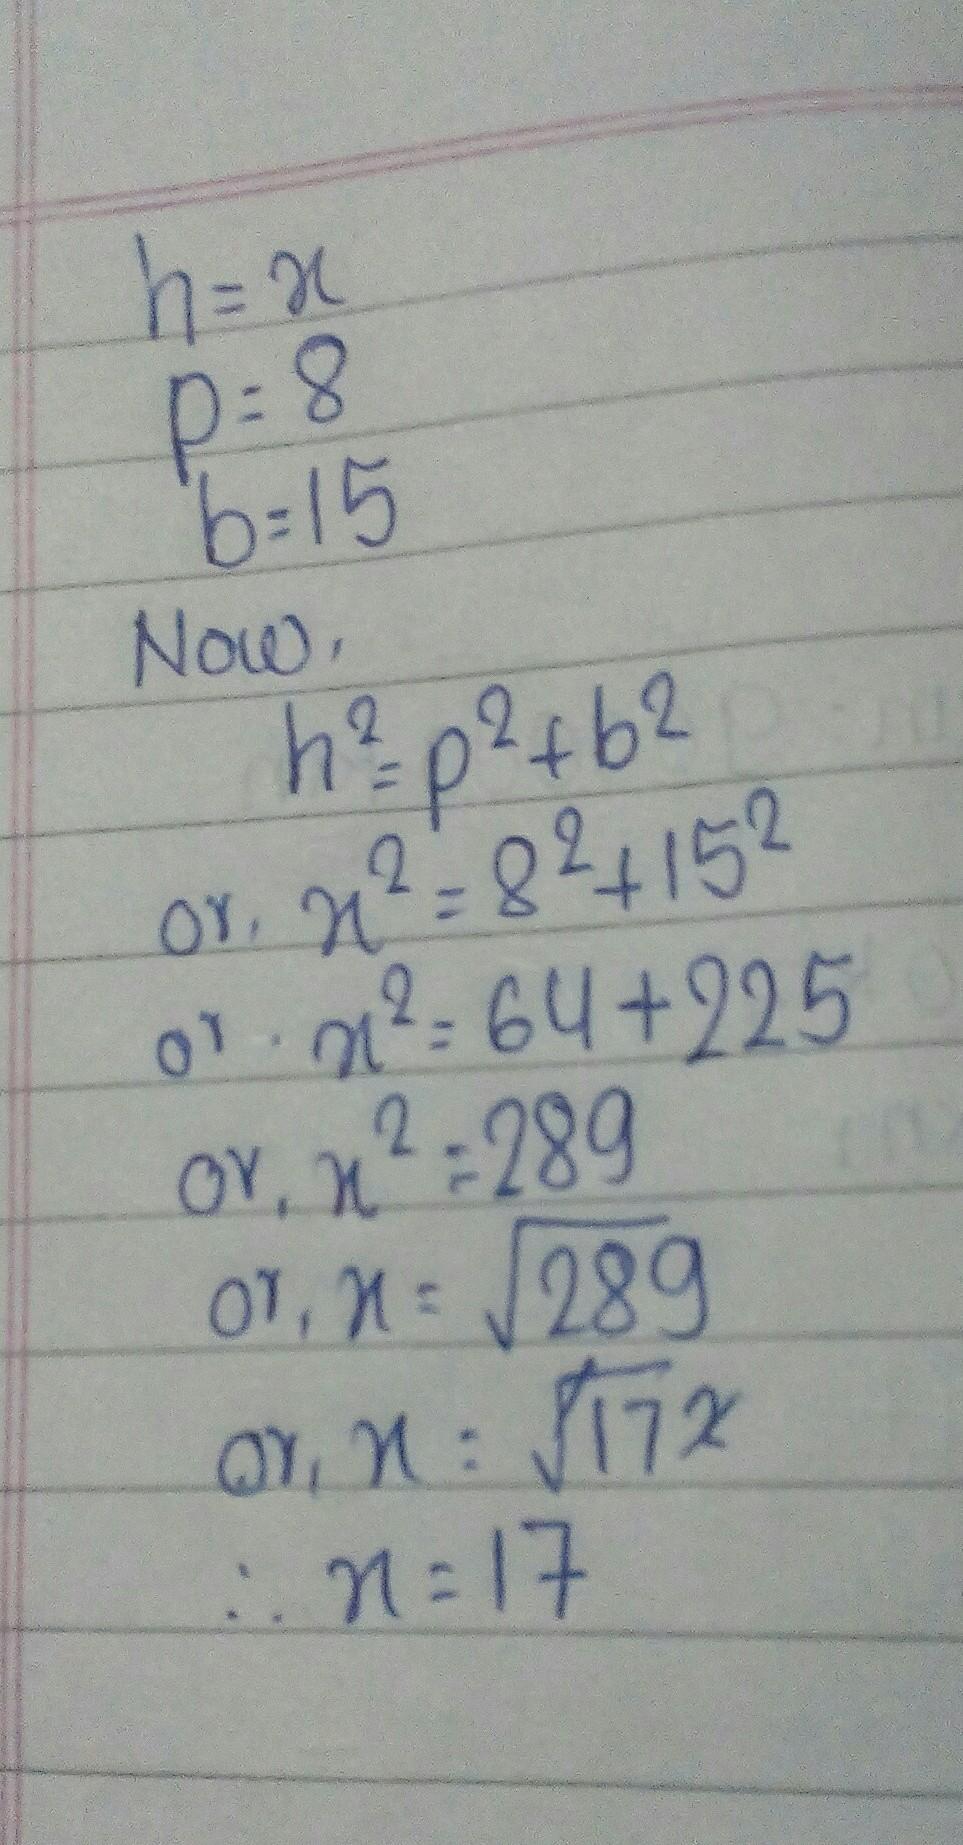 h = x
p = 8
b = 15
Now,
h² = p² + b²
or, x² = 8² + 15²
or, x² = 64 + 225
or, x² = 289
or, x = √289
or, x = √17²
∴ x = 17